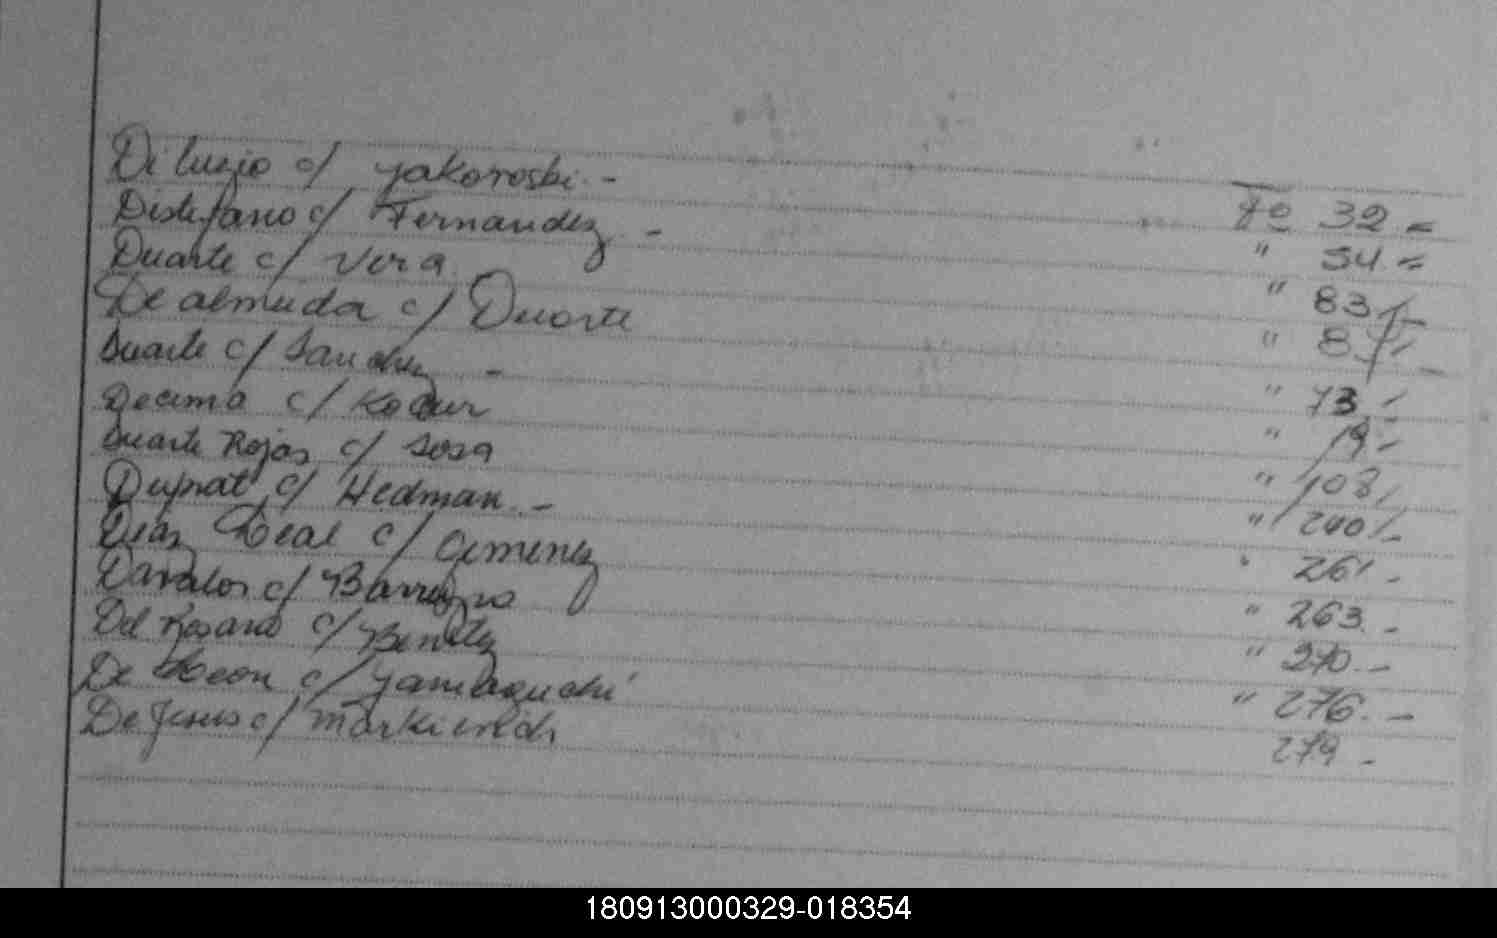 Di Luzio c/ Yakoroski. - Fo 32 =
Distefano c/ Fernandez - " 54 =
Duarte c/ Vera " 83 -
De almeida c/ Duarte "
Duarte c/ Sanchez - " 73 -
Decima c/ " 19 -
Duarte Rojas c/ Sosa " 108 -
Duprat c/ Hedman. - " 240 -
Diaz Leal c/ Gimenez " 261 -
Davalos c/ Barreyro " 263 -
Del Rosario c/ Benitez " 270 -
De Leon c/ Yamaguchi " 276. -
De Jesus c/ Markievich 279 -
180913000329-018354